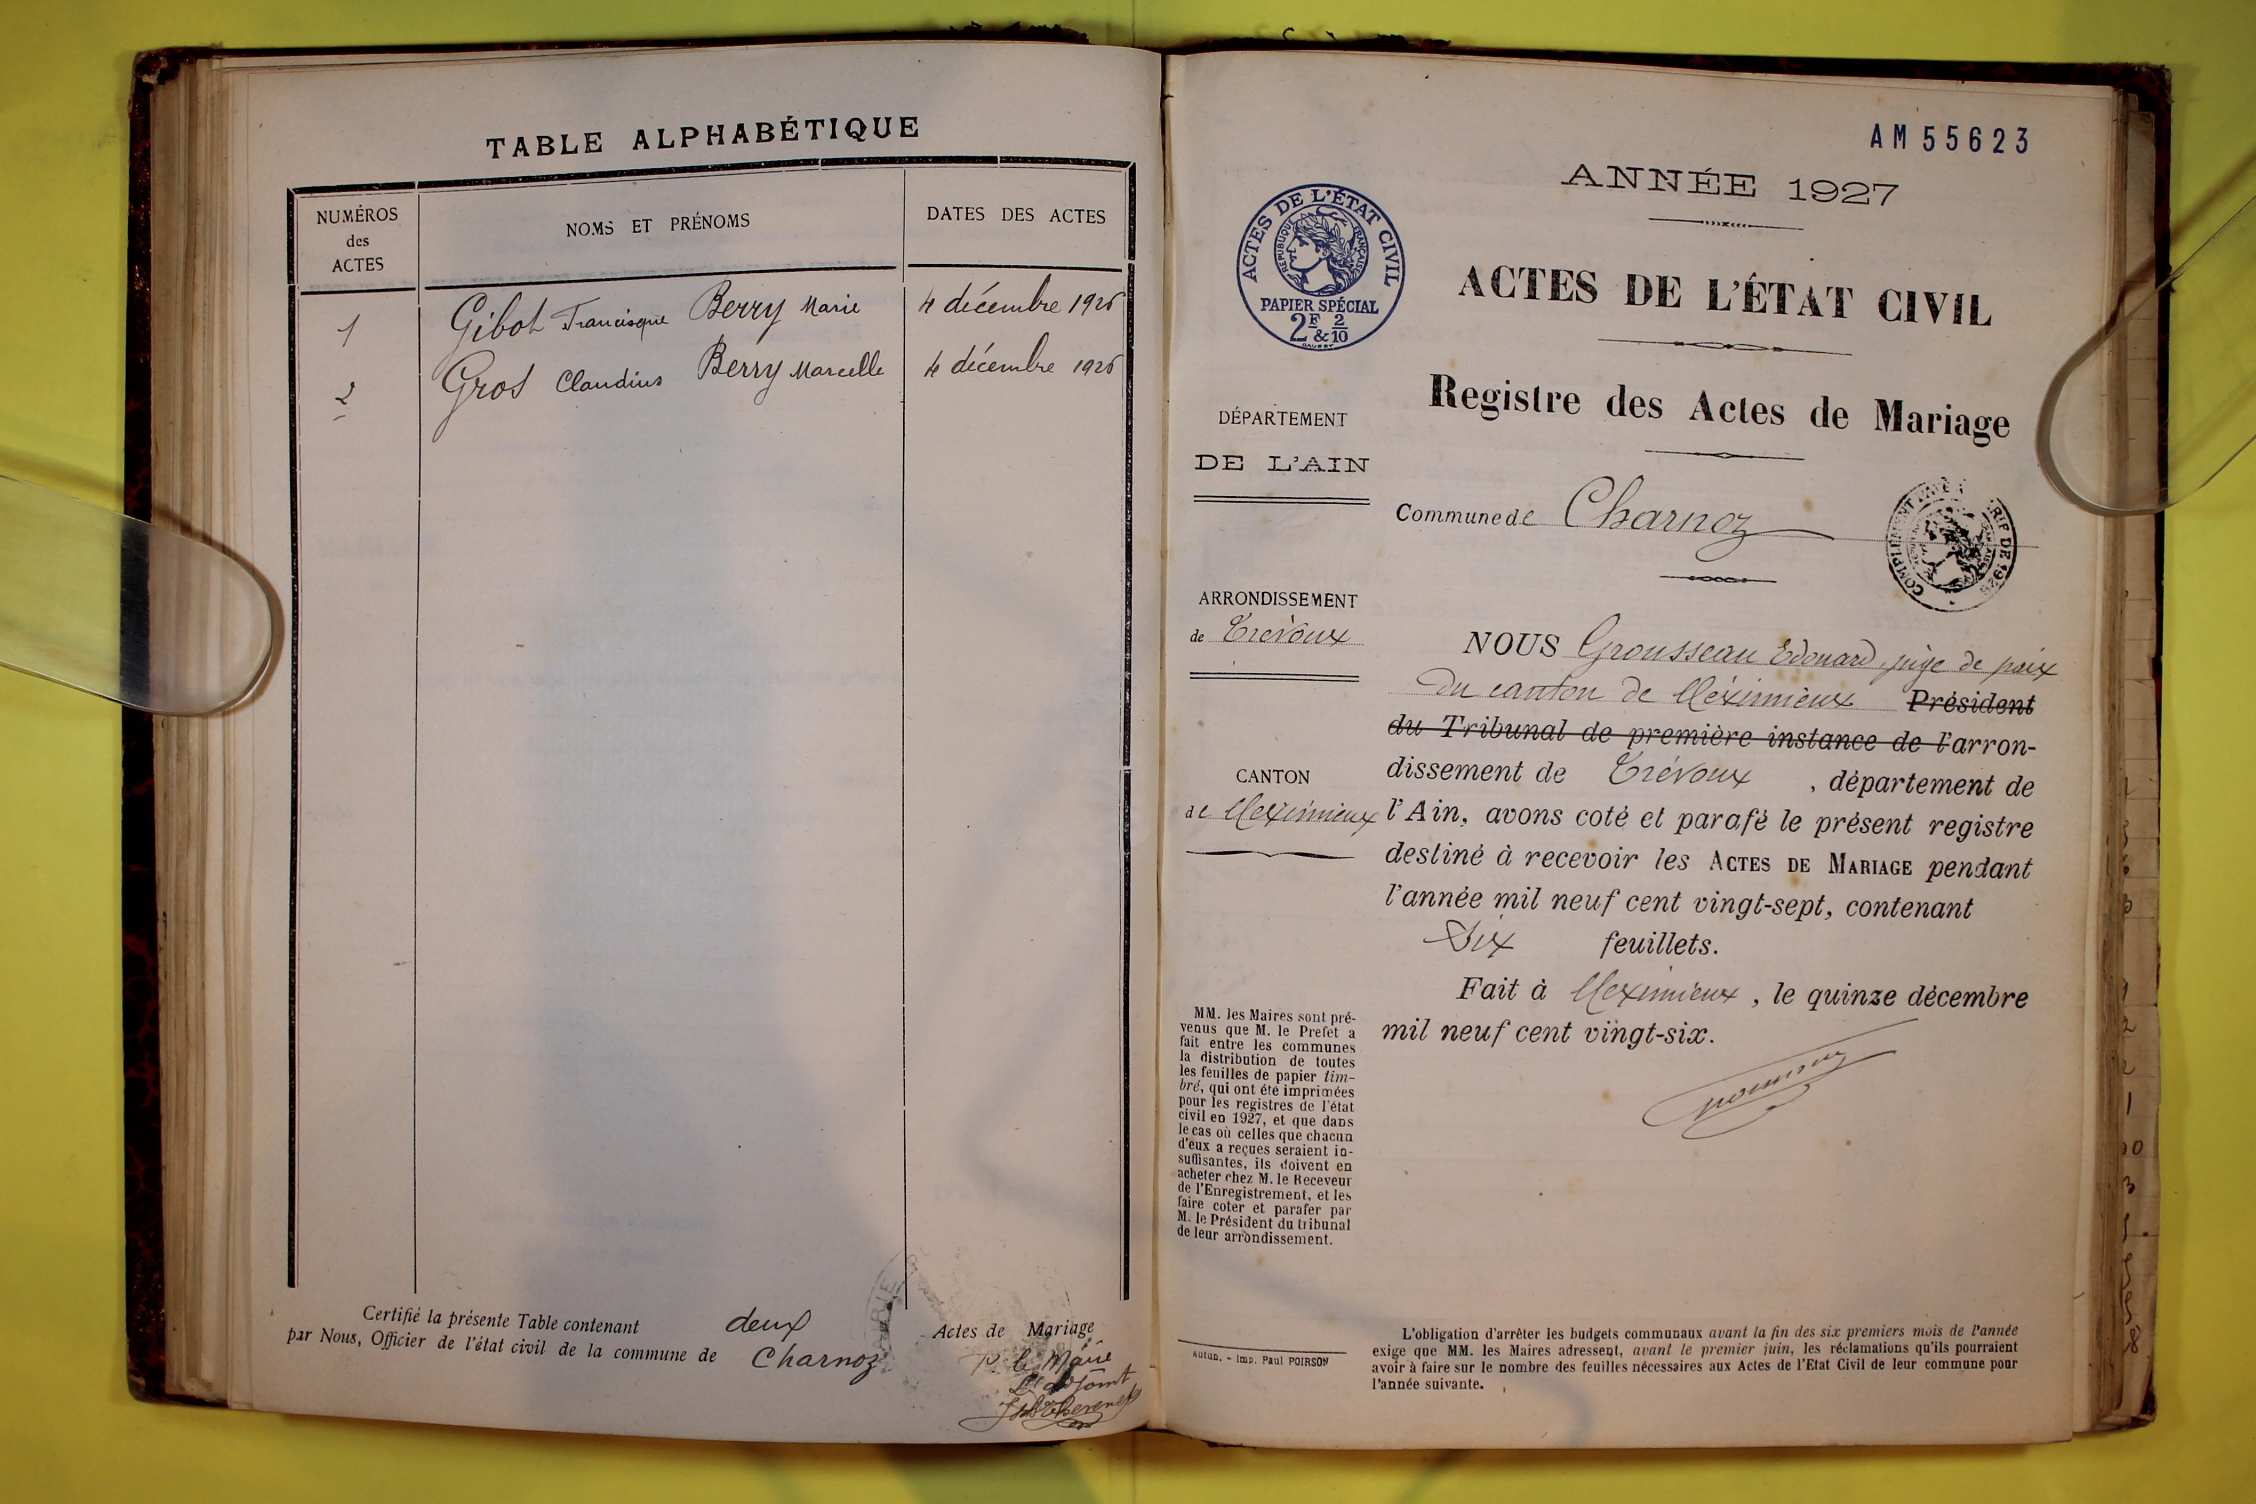 TABLE ALPHABÉTIQUE
NUMÉROS
des
ACTES
NOMS ET PRÉNOMS
DATES DES ACTES
1 Gibot Francisque Berry Marie 4 décembre 1926
2 Gros Claudius Berry Marcelle 4 décembre 1926
Certifié la présente Table contenant deux Actes de Mariage
par Nous, Officier de l'état civil de la commune de Charnoz
P. le Maire
L'adjoint
AM55623
ANNÉE 1927
ACTES DE L'ÉTAT CIVIL
RÉPUBLIQUE FRANÇAISE
PAPIER SPÉCIAL
2F & 2/10
ACTES DE L'ÉTAT CIVIL
Registre des Actes de Mariage
DÉPARTEMENT
DE L'AIN
Commune de Charnoz
COMPLÉMENT DE 1926
ARRONDISSEMENT
de Trévoux
CANTON
de Meximieux
NOUS Grousseau Edouard, juge de paix
du canton de Méximieux Président
du Tribunal de première instance de l'arron-
dissement de Trévoux, département de
l'Ain, avons coté et parafé le présent registre
destiné à recevoir les ACTES DE MARIAGE pendant
l'année mil neuf cent vingt-sept, contenant
Six feuillets.
Fait à Meximieux, le quinze décembre
mil neuf cent vingt-six.
MM. les Maires sont pré-
venus que M. le Prefet a
fait entre les communes
la distribution de toutes
les feuilles de papier tim-
bré, qui ont été imprimées
pour les registres de l'état
civil en 1927, et que dans
le cas où celles que chacun
d'eux a reçues seraient in-
suffisantes, ils doivent en
acheter chez M. le Receveur
de l'Enregistrement, et les
faire coter et parafer par
M. le Président du tribunal
de leur arrondissement.
Autun. - Imp. Paul POIRSON
L'obligation d'arrêter les budgets communaux avant la fin des six premiers mois de l'année
exige que MM. les Maires adressent, avant le premier juin, les réclamations qu'ils pourraient
avoir à faire sur le nombre des feuilles nécessaires aux Actes de l'Etat Civil de leur commune pour
l'année suivante.